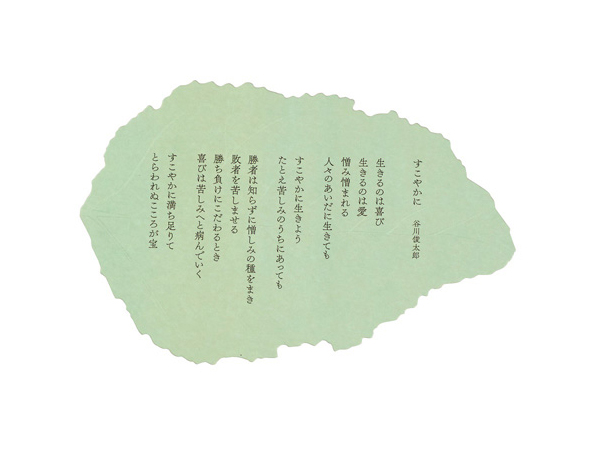 すこやかに　谷川俊太郎
生きるのは喜び
生きるのは愛
憎み憎まれる
人々のあいだに生きても
すこやかに生きよう
たとえ苦しみのうちにあっても
勝者は知らずに憎しみの種をまき
敗者を苦しませる
勝ち負けにこだわるとき
喜びは苦しみへと病んでいく
すこやかに満ち足りて
とらわれぬこころが宝